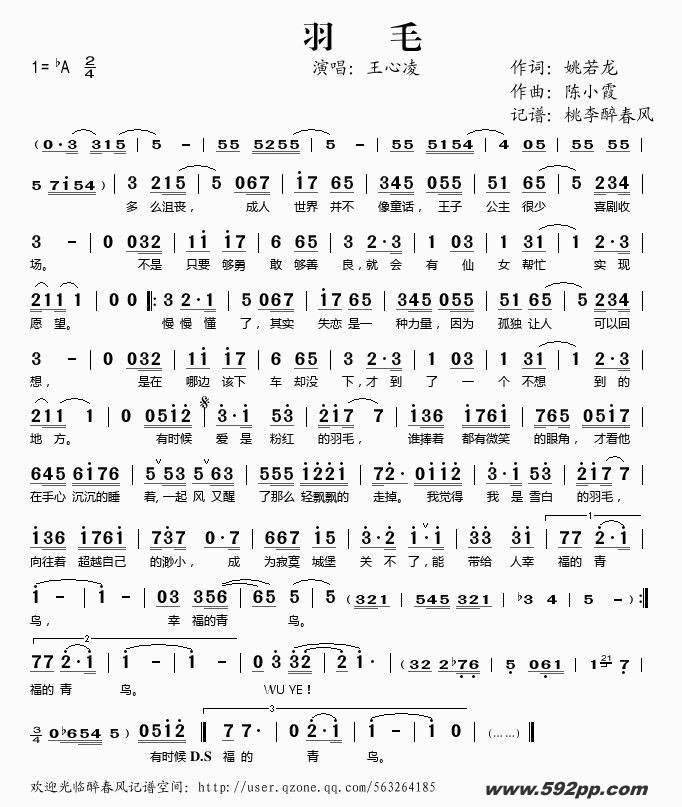 羽 毛
1= ♭A 2/4 演唱：王心凌 作词：姚若龙
作曲：陈小霞
记谱：桃李醉春风
(0·3 315 | 5 - | 55 5255 | 5 - | 55 5154 | 4 05 | 55 55
5 7154) | 3 215 | 5 067 | 17 65 | 345 055 | 51 65 | 5 234
多 么沮丧， 成人 世界 并不 像童话， 王子 公主 很少 喜剧收
3 - | 0 032 | 11 17 | 6 65 | 3 2·3 | 1 03 | 1 31 | 1 2·3
场。 不是 只要 够勇 敢 够善 良，就 会 有 仙 女 帮忙 实现
211 1 | 0 0 ‖: 3 2·1 | 5 067 | 17 65 | 345 055 | 51 65 | 5 234
愿 望。 慢 慢 懂 了，其实 失恋 是一 种力量，因为 孤独 让人 可以回
3 - | 0 032 | 11 17 | 6 65 | 3 2·3 | 1 03 | 1 31 | 1 2·3
想， 是在 哪边 该下 车 却没 下，才 到 了 一 个 不想 到的
211 1 | 0 0512 | 3·1 53 | 217 7 | 136 1761 | 765 0517
地 方。 有时候 爱 是 粉红 的羽毛， 谁捧着 都有微笑 的眼角，才看他
645 6176 | 5 53 | 5 63 | 555 1221 | 72· 0112 | 3·1 53 | 217 7
在手心 沉沉的睡 着，一起 风 又醒 了那么 轻飘飘的 走掉。 我觉得 我 是 雪白 的羽毛，
136 1761 | 737 0·7 | 667 15 | 3·2 1·1 | 33 31 | 77 2·1
向往着 超越自己 的渺小， 成 为寂寞 城堡 关 不 了，能 带给 人幸 福的 青
1 - | 1 - | 03 356 | 65 5 | 5 (321 | 545 321 | ♭3 4 | 5 -) :‖
鸟， 幸 福的青 鸟。
77 2·1 | 1 - | 1 - | 0 3 32 | 21 1· | (32 2♭76 | 5 061 | 1 7
福的 青 鸟。 WU YE！
3/4 0♭654 5) 0512 ‖ 77· | 0 2·1 | 1 - | 1 - | (……) ‖
有时候 D.S 福 的 青 鸟。
欢迎光临醉春风记谱空间：http://user.qzone.qq.com/563264185
www.592pp.com